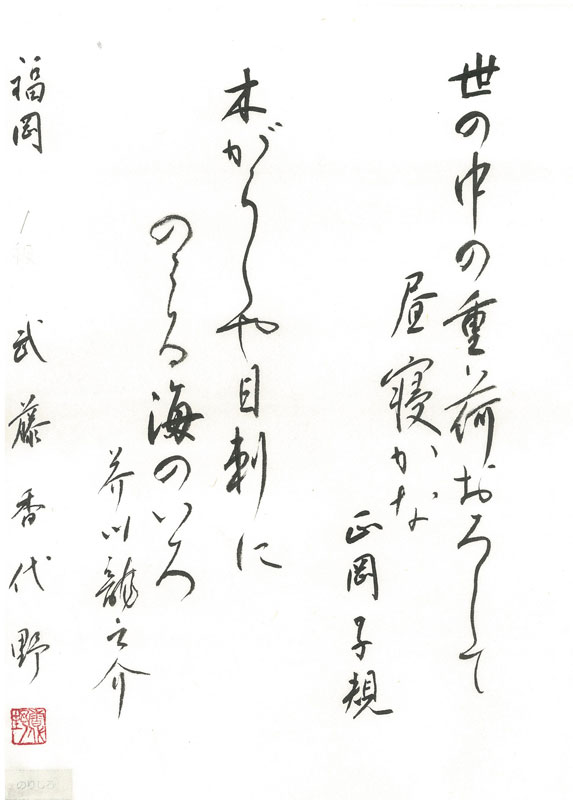 世の中の重荷おろして
昼寝かな
正岡子規
木がらしや目刺に
のこる海のいろ
芥川龍之介
福岡
武藤香代野
のりしろ